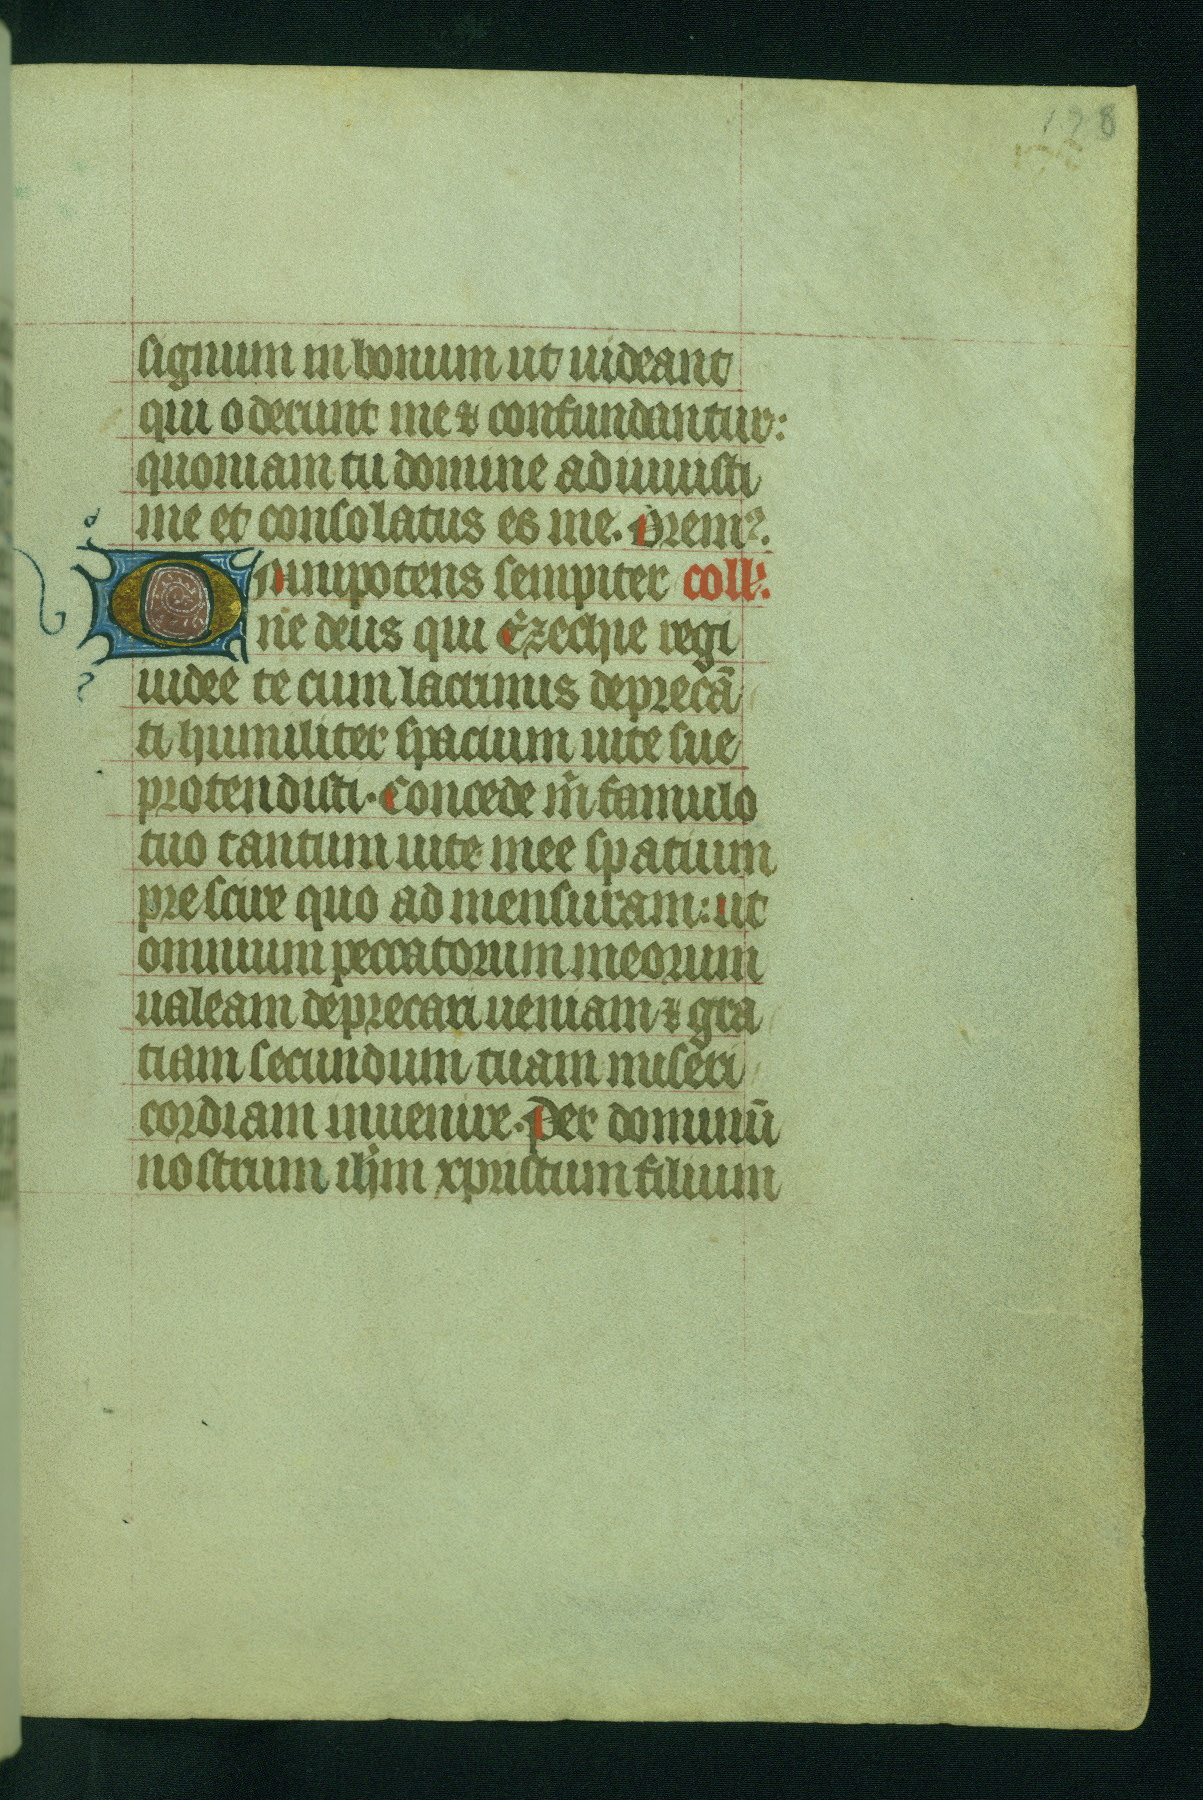 198
signum in bonum ut uideant
qui oderunt me ⁊ confundantur:
quoniam tu domine adiuuisti
me et consolatus es me. Oremꝰ.
Omnipotens sempiter coll'.
ne deus qui Ezechie regi
iudee te cum lacrimis deprecā
ti humiliter spacium uite sue
protendisti. Concede m̄ famulo
tuo tantum uite mee spatium
prescire quo ad mensuram: ut
omnium peccatorum meorum
ualeam deprecari ueniam ⁊ gra
tiam secundum tuam miseri
cordiam inuenire. Per dominū
nostrum ihm̄ xpristum filium